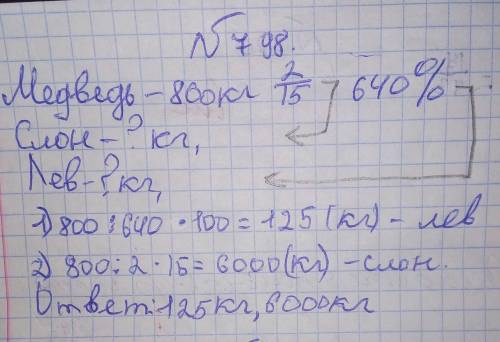 № 798.
Медведь – 800кг 2/15 640%
Слон – ? кг,
Лев – ? кг,
1) 800 : 640 · 100 = 125 (кг) – лев
2) 800 : 2 · 15 = 6000 (кг) – слон.
Ответ: 125кг, 6000кг